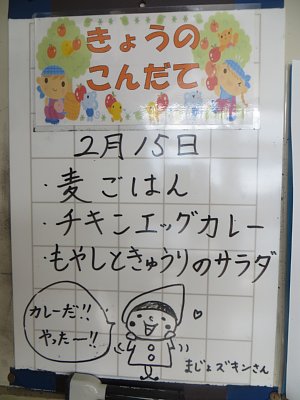 きょうの
こんだて
2月15日
・麦ごはん
・チキンエッグカレー
・もやしときゅうりのサラダ
カレーだ!!
やったー!!
まじょズキンさん